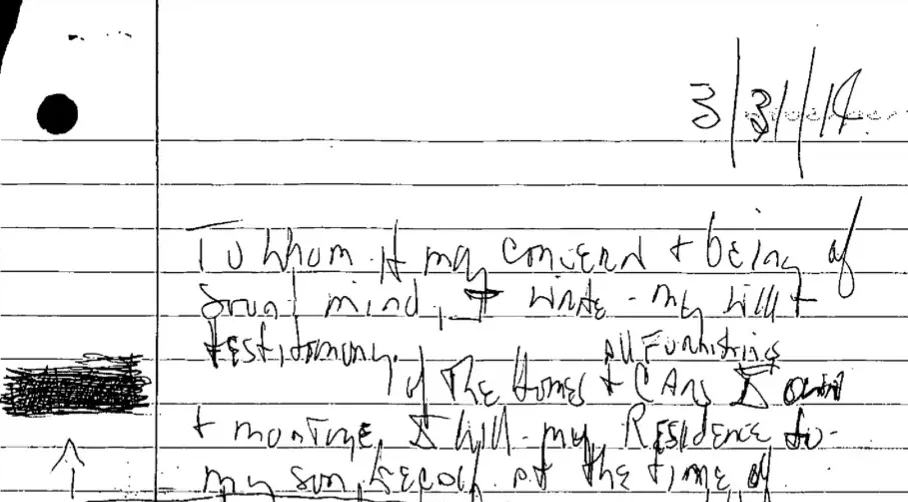 3/31/14
To Whom it may concern + being of
sound mind, I write my will +
testitomony.
all Furnishings
Of The Homes + CArs I own
+ mortgage, I will my Residence to
my son, Kecalf at the time of